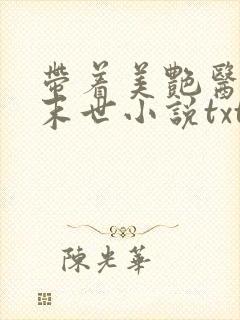 帶着美艷醫
末世小説txt
陳光華